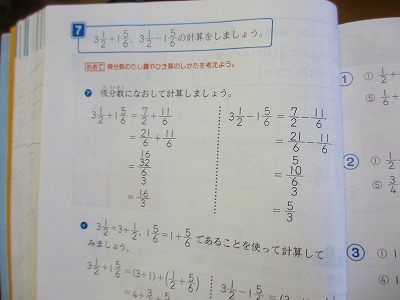 7
3 1/2 + 1 5/6, 3 1/2 − 1 5/6 の計算をしましょう。
めあて 帯分数のたし算やひき算のしかたを考えよう。
ア 仮分数になおして計算しましょう。
3 1/2 + 1 5/6 = 7/2 + 11/6
= 21/6 + 11/6
16
= 32/6
3
= 16/3
3 1/2 − 1 5/6 = 7/2 − 11/6
= 21/6 − 11/6
5
= 10/6
3
= 5/3
イ 3 1/2 = 3 + 1/2, 1 5/6 = 1 + 5/6 であることを使って計算して
みましょう。
3 1/2 + 1 5/6 = (3+1) + (1/2 + 5/6)
= 4 + 3/6 +
3 1/2 − 1 5/6 =
1
①
⑤
2
①
⑤ 3/4
3
①